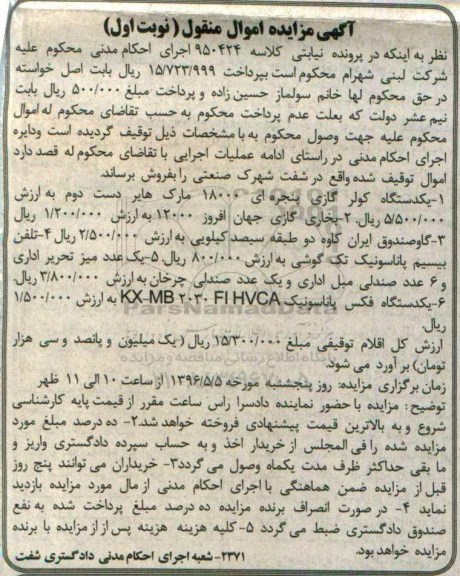 آگهی مزایده اموال منقول (نوبت اول)
نظر به اینکه در پرونده نیابتی کلاسه ۹۵۰۴۲۴ اجرای احکام مدنی محکوم علیه
شرکت لبنی شهرام محکوم است بپرداخت ۱۵/۷۲۳/۹۹۹ ریال بابت اصل خواسته
در حق محکوم لها خانم سولماز حسین زاده و پرداخت مبلغ ۵۰۰/۰۰۰ ریال بابت
نیم عشر دولت که بعلت عدم پرداخت محکوم به حسب تقاضای محکوم له اموال
محکوم علیه جهت وصول محکوم به با مشخصات ذیل توقیف گردیده است ودایره
اجرای احکام مدنی در راستای ادامه عملیات اجرایی با تقاضای محکوم له قصد دارد
اموال توقیف شده واقع در شفت شهرک صنعتی را بفروش برساند.
۱-یکدستگاه کولر گازی پنجره ای ۱۸۰۰۰ مارک هایر دست دوم به ارزش
۵/۵۰۰/۰۰۰ ریال ۲-بخاری گازی جهان افروز ۱۲۰۰۰ به ارزش ۱/۲۰۰/۰۰۰ ریال
۳-گاوصندوق ایران کاوه دو طبقه سیصد کیلویی به ارزش ۲/۵۰۰/۰۰۰ ریال ۴-تلفن
بیسیم پاناسونیک تک گوشی به ارزش ۸۰۰/۰۰۰ ریال ۵-یک عدد میز تحریر اداری
و ۶ عدد صندلی مبل اداری و یک عدد صندلی چرخان به ارزش ۳/۸۰۰/۰۰۰ ریال
۶-یکدستگاه فکس پاناسونیک KX-MB ۲۰۳۰ FI HVCA به ارزش ۱/۵۰۰/۰۰۰
ریال.
ارزش کل اقلام توقیفی مبلغ ۱۵/۳۰۰/۰۰۰ ریال (یک میلیون و پانصد و سی هزار
تومان) بر آورد می شود.
زمان برگزاری مزایده: روز پنجشنبه مورخه ۱۳۹۶/۵/۵ از ساعت ۱۰ الی ۱۱ ظهر
توضیح: مزایده با حضور نماینده دادسرا راس ساعت مقرر از قیمت پایه کارشناسی
شروع و به بالاترین قیمت پیشنهادی فروخته خواهد شد ۲- ده درصد مبلغ مورد
مزایده شده را فی المجلس از خریدار اخذ و به حساب سپرده دادگستری واریز و
ما بقی حداکثر ظرف مدت یکماه وصول می گردد ۳- خریداران می توانند پنج روز
قبل از مزایده ضمن هماهنگی با اجرای احکام مدنی از مال مورد مزایده بازدید
نماید ۴- در صورت انصراف برنده مزایده ده درصد مبلغ پرداخت شده به نفع
صندوق دادگستری ضبط می گردد ۵-کلیه هزینه هزینه پس از از مزایده با برنده
مزایده خواهد بود.
۲۳۷۱-شعبه اجرای احکام مدنی دادگستری شفت
ParsNamadData